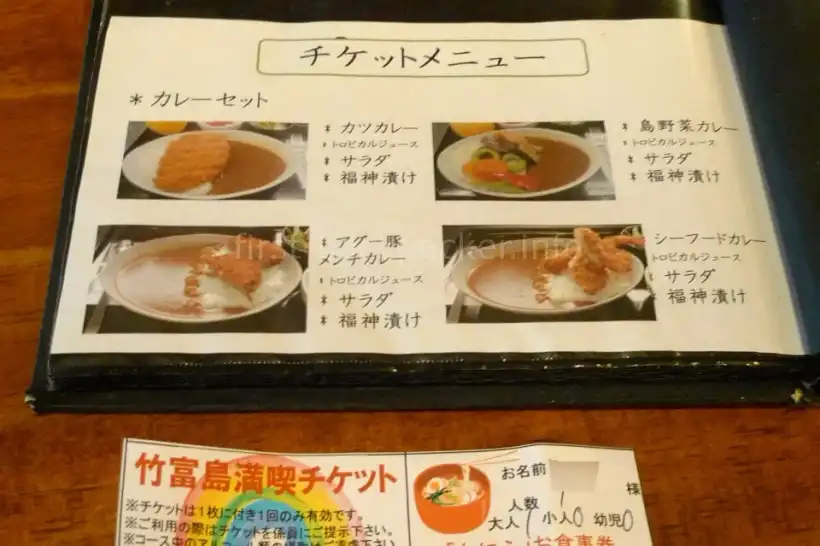 チケットメニュー
* カレーセット
* カツカレー
* トロピカルジュース
* サラダ
* 福神漬け
* 島野菜カレー
* トロピカルジュース
* サラダ
* 福神漬け
* アグー豚
メンチカレー
* トロピカルジュース
* サラダ
* 福神漬け
シーフードカレー
トロピカルジュース
* サラダ
* 福神漬け
竹富島満喫チケット
※チケットは1枚に付き1回のみ有効です。
※ご利用の際はチケットを係員にご提示下さい。
お名前 様
人数
大人 1 小人0 幼児0
お食事券